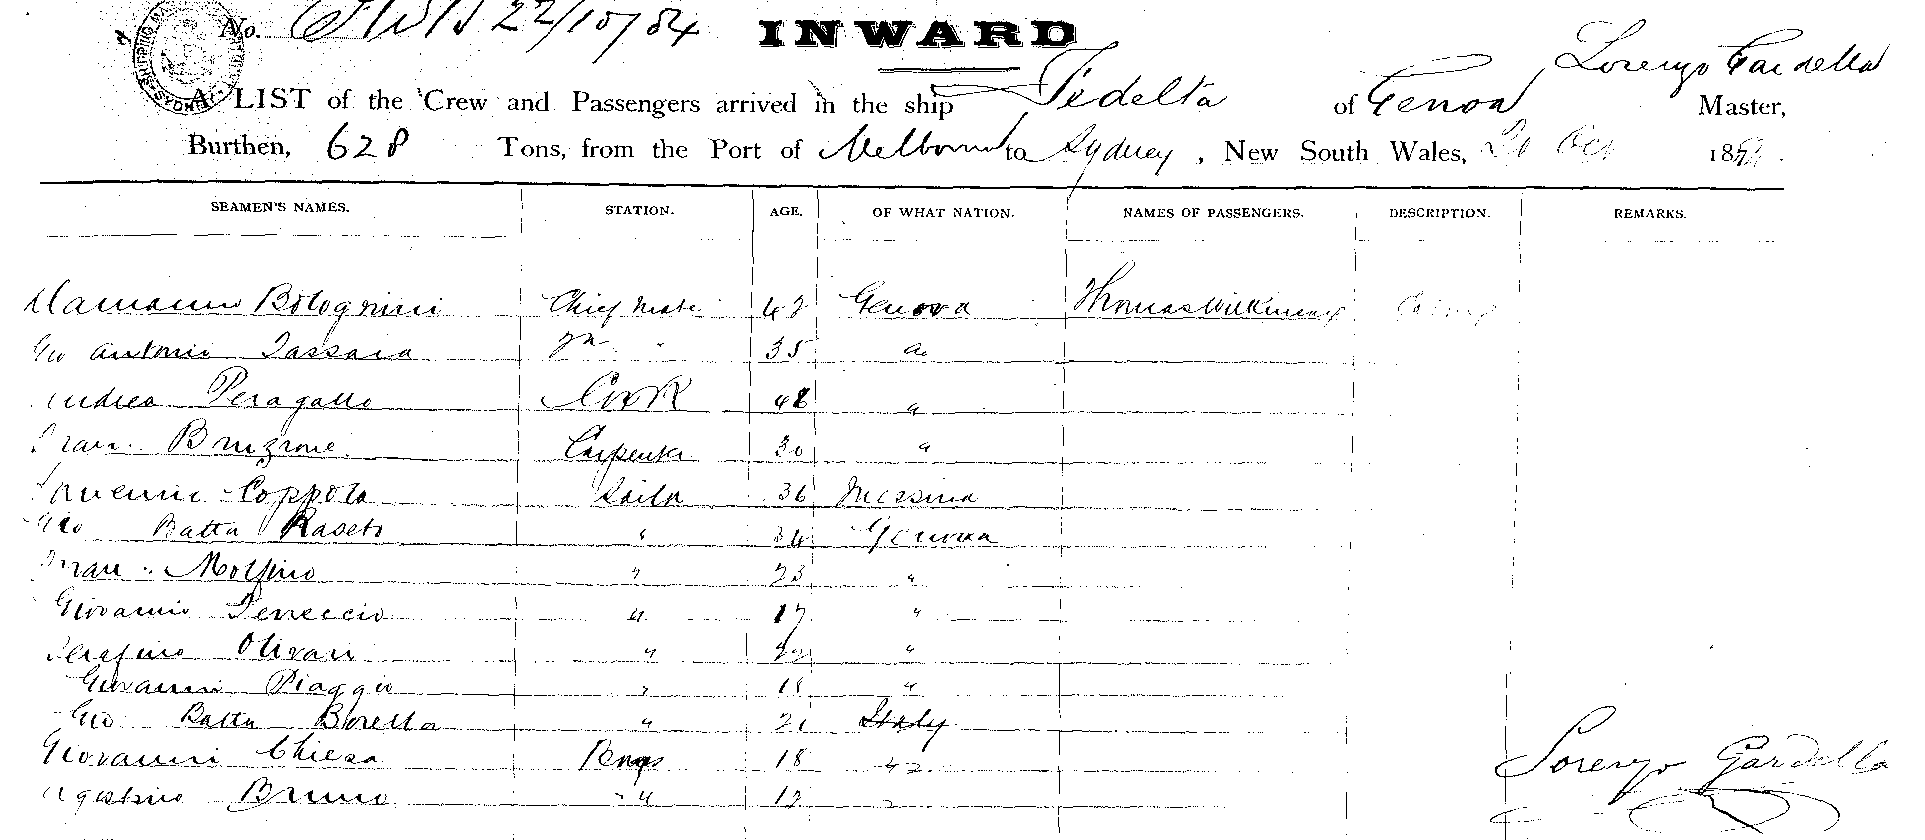 No. 22/10/84
INWARD
Lorenzo Gardella
A LIST of the Crew and Passengers arrived in the ship Fedelta of Genoa Master,
Burthen, 628 Tons, from the Port of Melbourne to Sydney, New South Wales, 20 Oct 188
SEAMEN'S NAMES. STATION. AGE. OF WHAT NATION. NAMES OF PASSENGERS. DESCRIPTION. REMARKS.
Bolognini Chief Mate 42 Genova Thomas Wilkinson
Gio Antonio Tassara 2n " 35 "
Andrea Peragallo Cook 48 "
Fran. Bruzzone Carpenter 30 "
Coppola Sailor 36 Messina
Gio Batta Raseto " 34 Genova
Fran. Molfino " 23 "
Giovanni " 17 "
Serafino Olivari " "
Giovanni Piaggio " 18 "
Gio Batta Borella " 21 Italy
Giovanni Chiesa Boys 18
Agostino Bruno " 17
Lorenzo Gardella